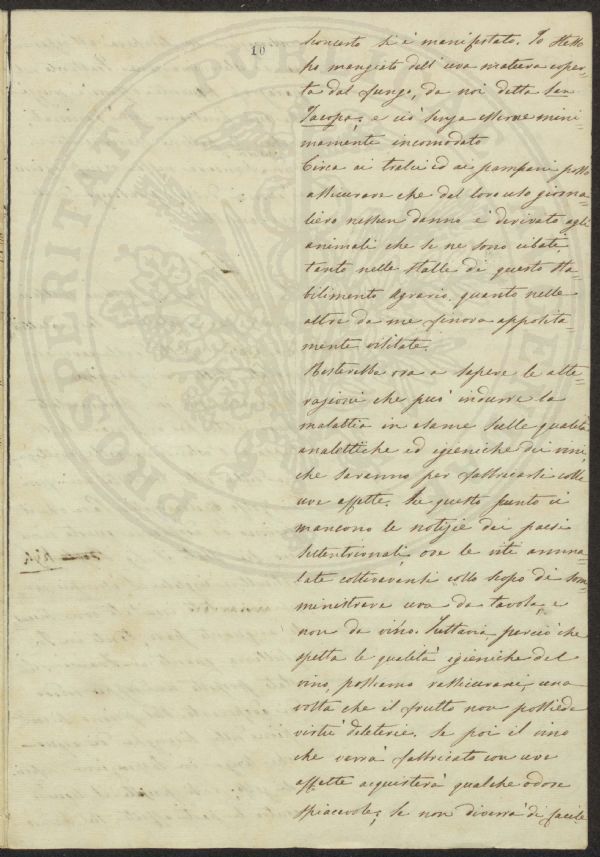 10
sconcerto si è manifestato. Io stesso
ho mangiato dell'uva matura coper=
ta dal fungo, da noi detta San
Jacopa; e ciò senza esserne mini=
mamente incomodato
Circa ai tralci ed ai pampani posso
assicurare che dal loro uso giorna=
liero nessun danno è derivato agli
animali che se ne sono cibati
tanto nelle stalle di questo Sta=
bilimento Agrario, quanto nelle
altre da me finora apposita=
mente visitate.
Resterebbe ora a sapere le alte=
razioni che può indurre la
malattia in esame sulle qualità
analettiche ed igieniche dei vini
che saranno per fabbricarsi colle
uve affette. Su questo punto ci
mancono le notizie dai paesi
settentrionali, ove le viti amma=
late coltivavansi collo scopo di som=
ministrare uva da tavola, e
non da vino. Tuttavia, perciò che
spetta le qualità igieniche del
vino, possiamo rassicurarci, una
volta che il frutto non possiede
virtù deleterie. Se poi il vino
che verrà fabbricato con uve
affette acquisterà qualche odore
spiacevole; se non diverrà di facile
PROSPERITATI PUBLICAE